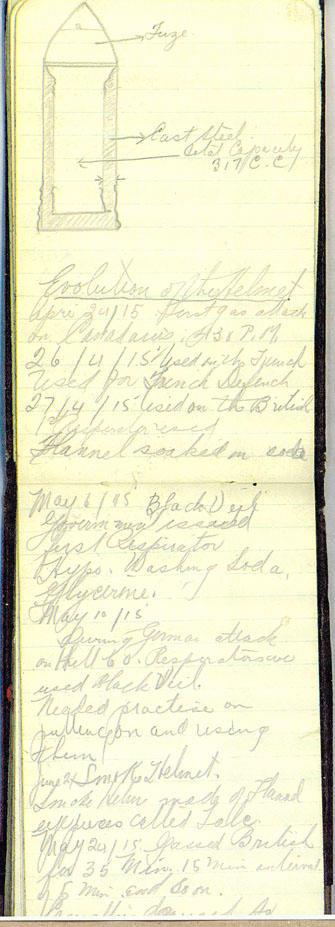 Fuze
Cast Steel
Total Capacity
317 C.C
Evolution of the Helmet
April 24/15 First gas attack
on Canadians 4.30 P.M
26/4/15 Used on the French
Used for French Defence
27/4/15 used on the British
1st respirator used
Flannel soaked in soda
May 6/15 Black Veil
Government issued
first respirator
Hypo. Washing Soda,
Glycerine.
May 10/15
During German attack
on Hill 60. Respirators were
used Black Veil.
Needed practise on
putting on and using
them
June 24 Smoke Helmet.
Smoke Helm made of Flannel
eyepieces called Talc
May 24/15 Gassed British
for 35 Min. 15 Min interval
5 Min. and soon.